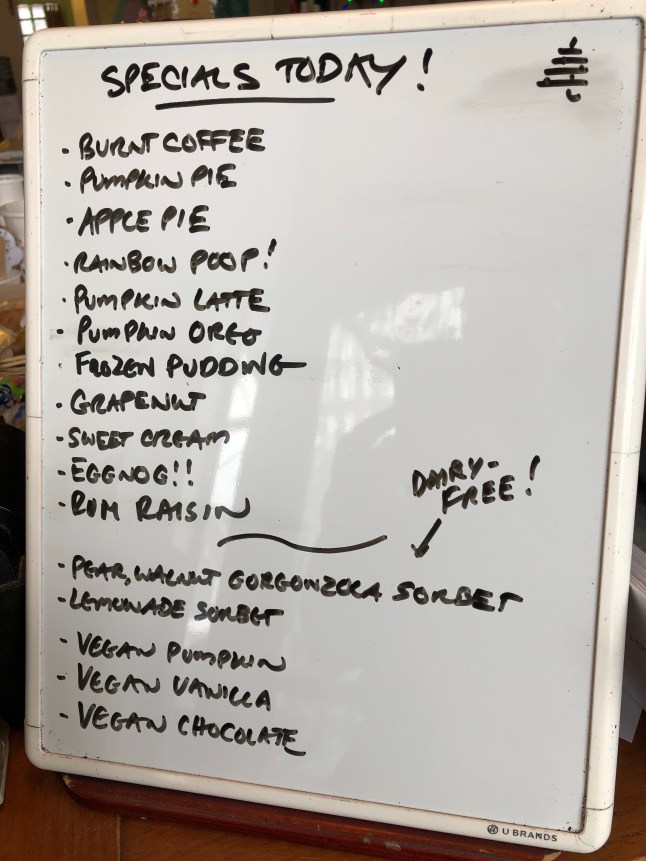 SPECIALS TODAY!
- BURNT COFFEE
- PUMPKIN PIE
- APPLE PIE
- RAINBOW POOP!
- PUMPKIN LATTE
- PUMPKIN OREO
- FROZEN PUDDING
- GRAPENUT
- SWEET CREAM
- EGGNOG!!
- RUM RAISIN
DAIRY-
FREE!
- PEAR, WALNUT GORGONZOLA SORBET
- LEMONADE SORBET
- VEGAN PUMPKIN
- VEGAN VANILLA
- VEGAN CHOCOLATE
U BRANDS